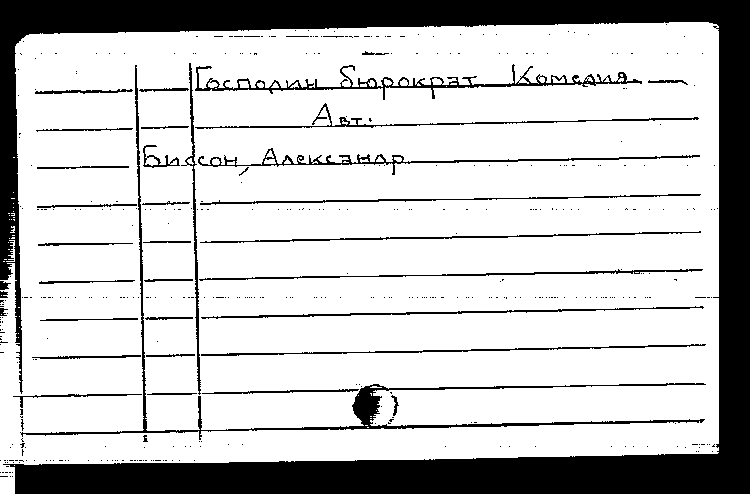 Господин бюрократ Комедия. —
Авт.:
Биссон, Александр